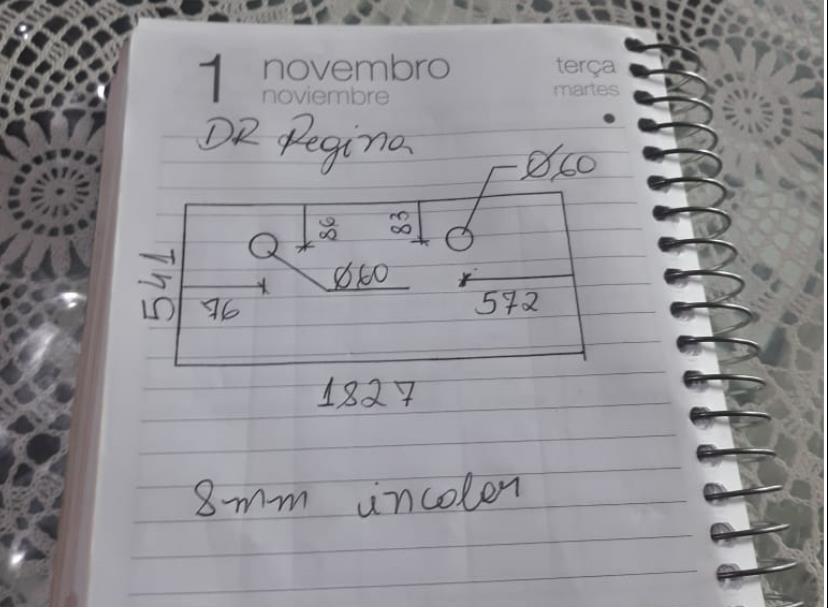 1 novembro terça
noviembre martes
DR Regina
Ø60
86 83
541
Ø60
76 572
1827
8mm incolor